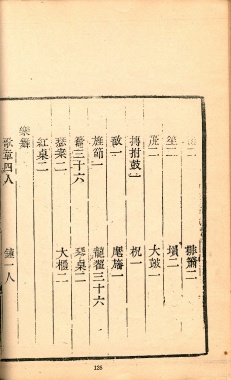 排簫二
笙二
塤二
箎二
大鼓一
搏拊鼓二
柷一
敔一
麾旛一
旌節一
龍翟三十六
籥三十六
琴桌二
瑟桌二
大櫃二
紅桌二
樂舞
歌章四人
鐘一人
128